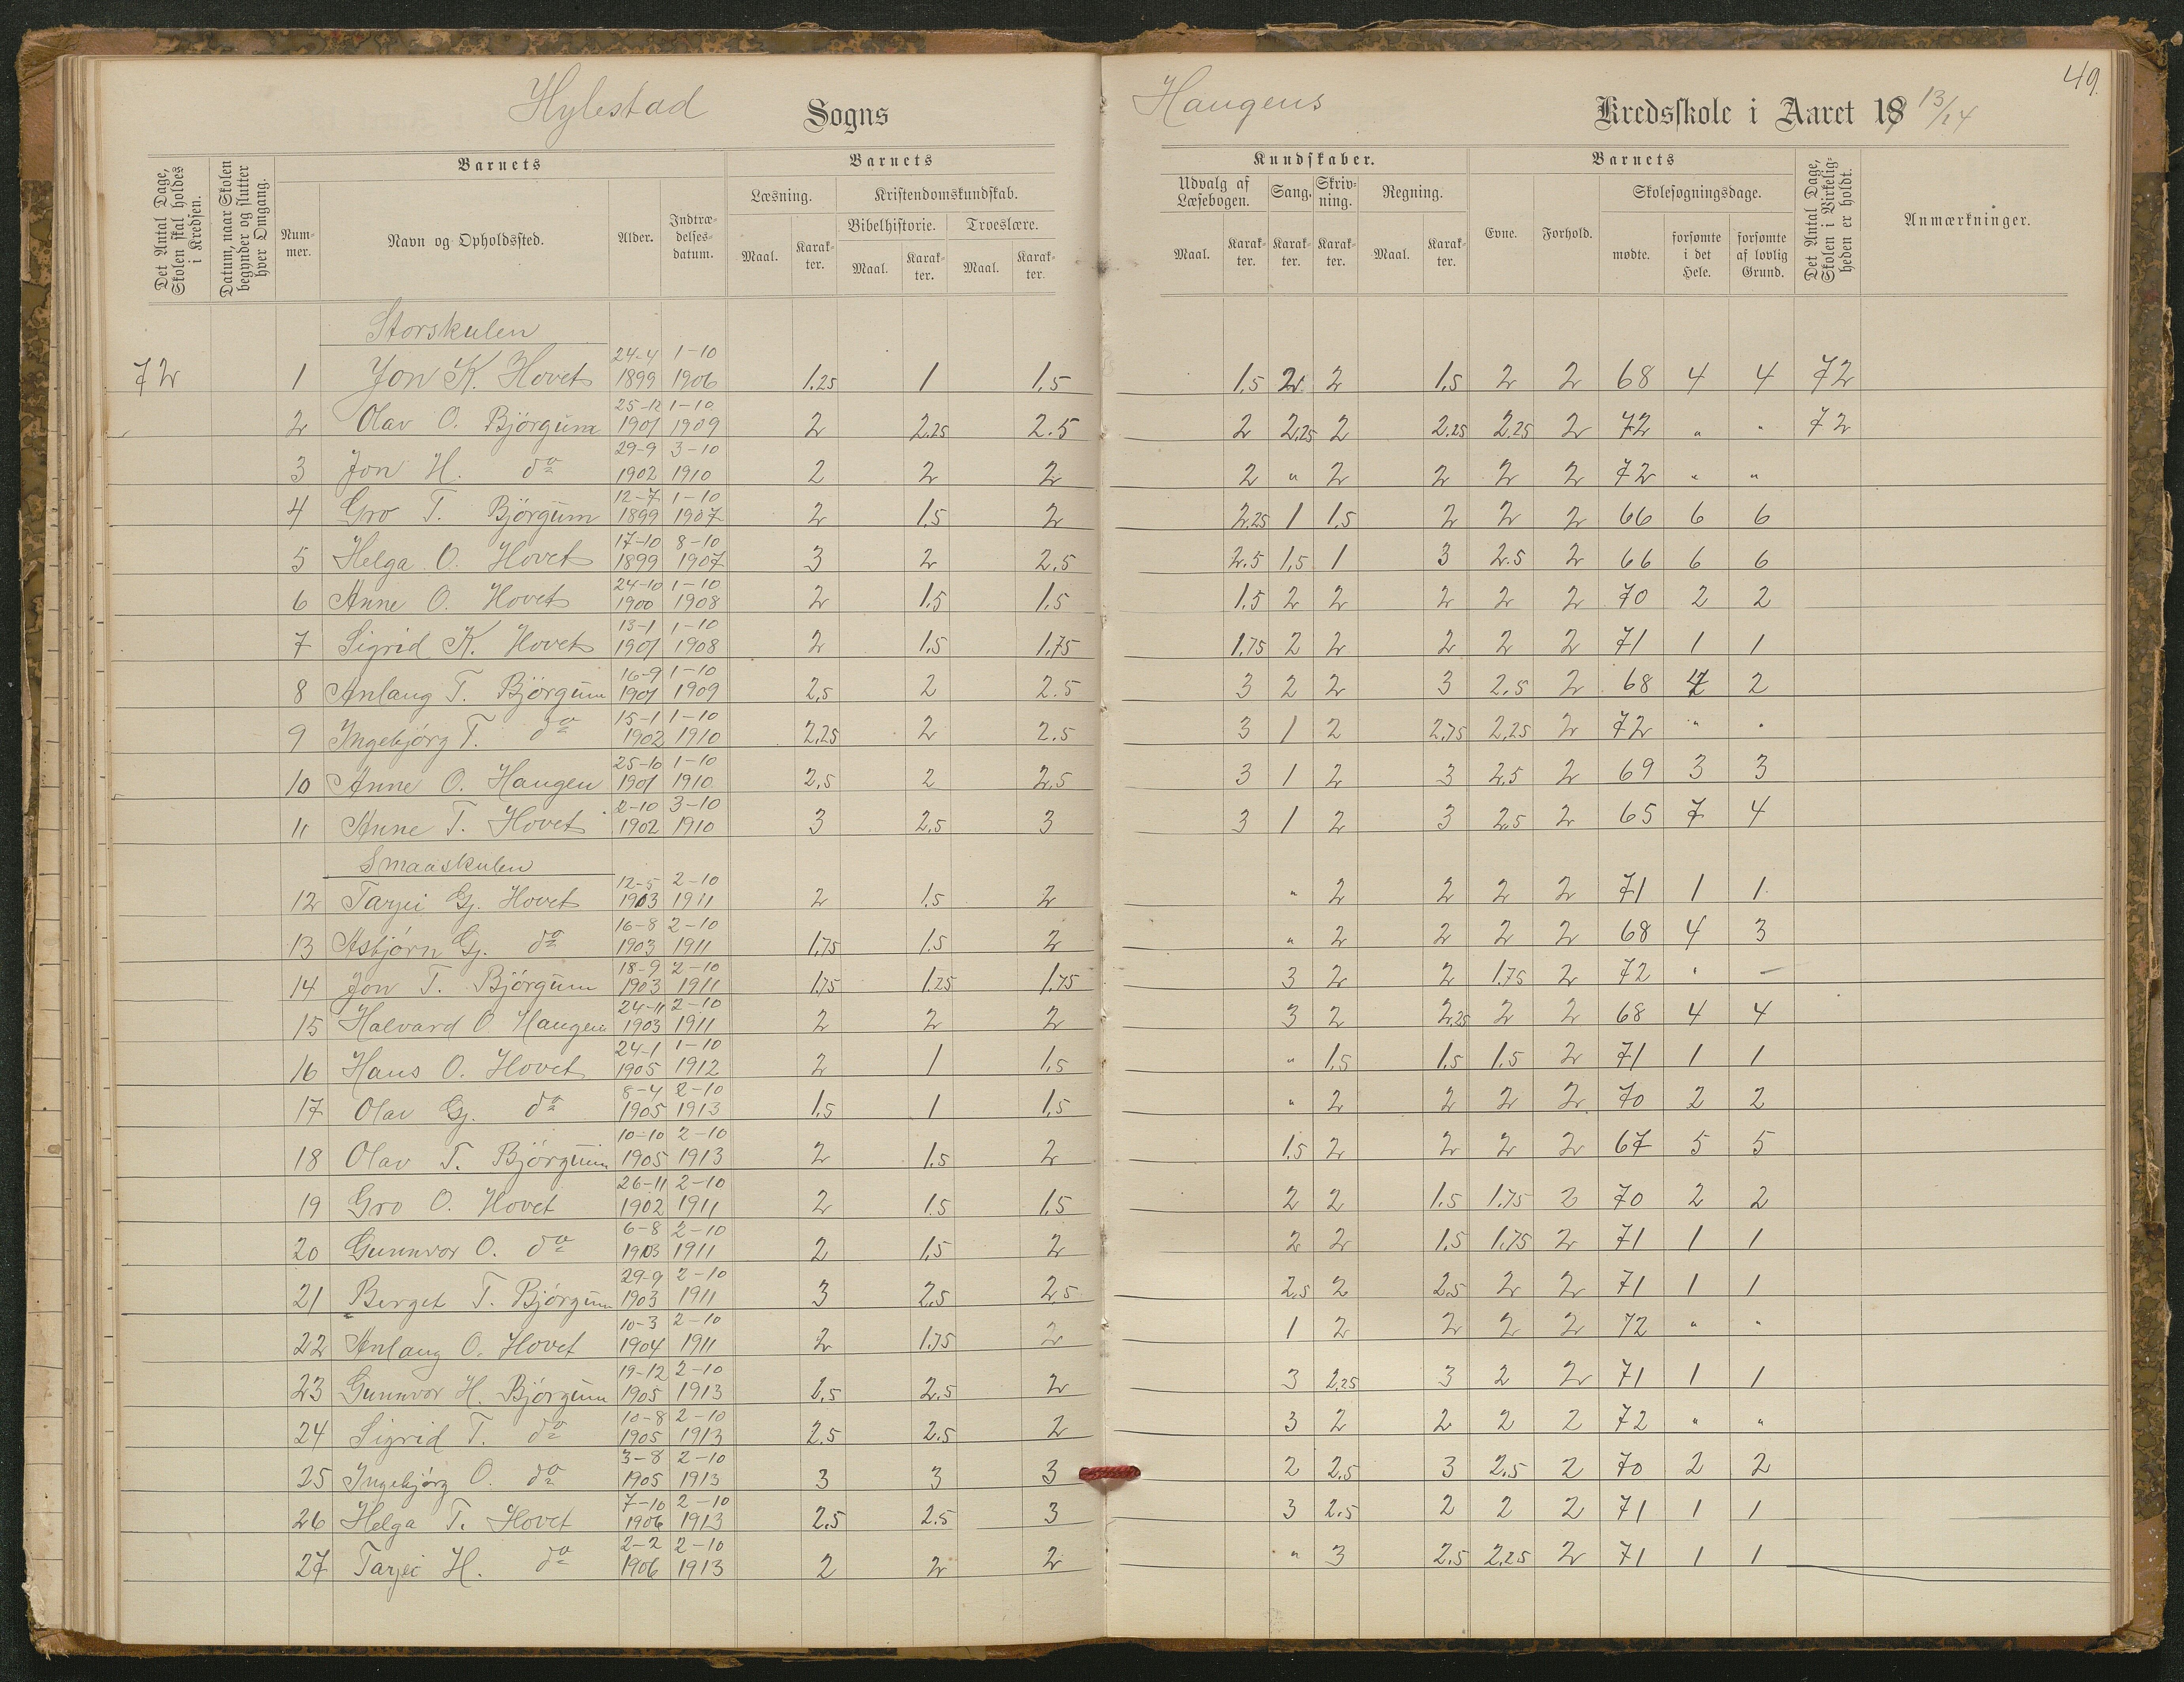 49.
Hylestad Sogns Haugens Kredsskole i Aaret 1913/14
Det Antal Dage, Skolen skal holdes i Kredsen.
Datum, naar Skolen begynder og slutter hver Omgang.
Barnets
Nummer.
Navn og Opholdssted.
Alder.
Indtrædelsesdatum.
Barnets
Læsning.
Kristendomskundskab.
Bibelhistorie.
Troeslære.
Maal. Karakter. Maal. Karakter. Maal. Karakter.
Kundskaber.
Udvalg af Læsebogen.
Sang.
Skrivning.
Regning.
Maal. Karakter. Karakter. Karakter. Maal. Karakter.
Barnets
Evne.
Forhold.
Skolesøgningsdage.
mødte.
forsømte i det Hele.
forsømte af lovlig Grund.
Det Antal Dage, Skolen i Virkeligheden er holdt.
Anmærkninger.
Storskulen
72 1 Jon K. Hovet 24-4 1899 1-10 1906 1.25 1 1.5 1.5 2 2 1.5 2 2 68 4 4 72
2 Olav O. Björgum 25-12 1901 1-10 1909 2 2.25 2.5 2 2.25 2 2.25 2.25 2 72 " " 72
3 Jon H. do 29-9 1902 3-10 1910 2 2 2 2 " 2 2 2 2 72 " "
4 Gro T. Björgum 12-7 1899 1-10 1907 2 1.5 2 2.25 1 1.5 2 2 2 66 6 6
5 Helga O. Hovet 17-10 1899 8-10 1907 3 2 2.5 2.5 1.5 1 3 2.5 2 66 6 6
6 Anne O. Hovet 24-10 1900 1-10 1908 2 1.5 1.5 1.5 2 2 2 2 2 70 2 2
7 Sigrid K. Hovet 13-1 1901 1-10 1908 2 1.5 1.75 1.75 2 2 2 2 2 71 1 1
8 Anlaug T. Björgum 16-9 1901 1-10 1909 2.5 2 2.5 3 2 2 3 2.5 2 68 4 2
9 Ingebjörg T. do 15-1 1902 1-10 1910 2.25 2 2.5 3 1 2 2.75 2.25 2 72 " "
10 Anne O. Haugen 25-10 1901 1-10 1910 2.5 2 2.5 3 1 2 3 2.5 2 69 3 3
11 Anne T. Hovet 2-10 1902 3-10 1910 3 2.5 3 3 1 2 3 2.5 2 65 7 4
Smaaskulen
12 Tarjei Gj. Hovet 12-5 1903 2-10 1911 2 1.5 2 " 2 2 2 2 71 1 1
13 Asbjörn Gj. do 16-8 1903 2-10 1911 1.75 1.5 2 " 2 2 2 2 68 4 3
14 Jon T. Björgum 18-9 1903 2-10 1911 1.75 1.25 1.75 3 2 2 1.75 2 72 " –
15 Halvard O. Haugen 24-11 1903 2-10 1911 2 2 2 3 2 2.25 2 2 68 4 4
16 Hans O. Hovet 24-1 1905 1-10 1912 2 1 1.5 " 1.5 1.5 1.5 2 71 1 1
17 Olav Gj. do 8-4 1905 2-10 1913 1.5 1 1.5 " 2 2 2 2 70 2 2
18 Olav T. Björgum 10-10 1905 2-10 1913 2 1.5 2 1.5 2 2 2 2 67 5 5
19 Gro O. Hovet 26-11 1902 2-10 1911 2 1.5 1.5 2 2 1.5 1.75 2 70 2 2
20 Gunnvor O. do 6-8 1903 2-10 1911 2 1.5 2 2 2 1.5 1.75 2 71 1 1
21 Berget T. Björgum 29-9 1903 2-10 1911 3 2.5 2.5 2.5 2 2.5 2 2 71 1 1
22 Anlaug O. Hovet 10-3 1904 2-10 1911 2 1.75 2 1 2 2 2 2 72 " "
23 Gunnvor H. Björgum 19-12 1905 2-10 1913 2.5 2 3 2.25 3 2 2 71 1 1
24 Sigrid T. do 10-8 1905 2-10 1913 2.5 2.5 2 3 2 2 2 2 72 " "
25 Ingebjörg O. do 3-8 1905 2-10 1913 3 3 3 2 2.5 3 2.5 2 70 2 2
26 Helga T. Hovet 7-10 1906 2-10 1913 2.5 2.5 3 3 2.5 2 2 2 71 1 1
27 Tarjei H. do 2-2 1906 2-10 1913 2 2 2 " 3 2.5 2.25 2 71 1 1